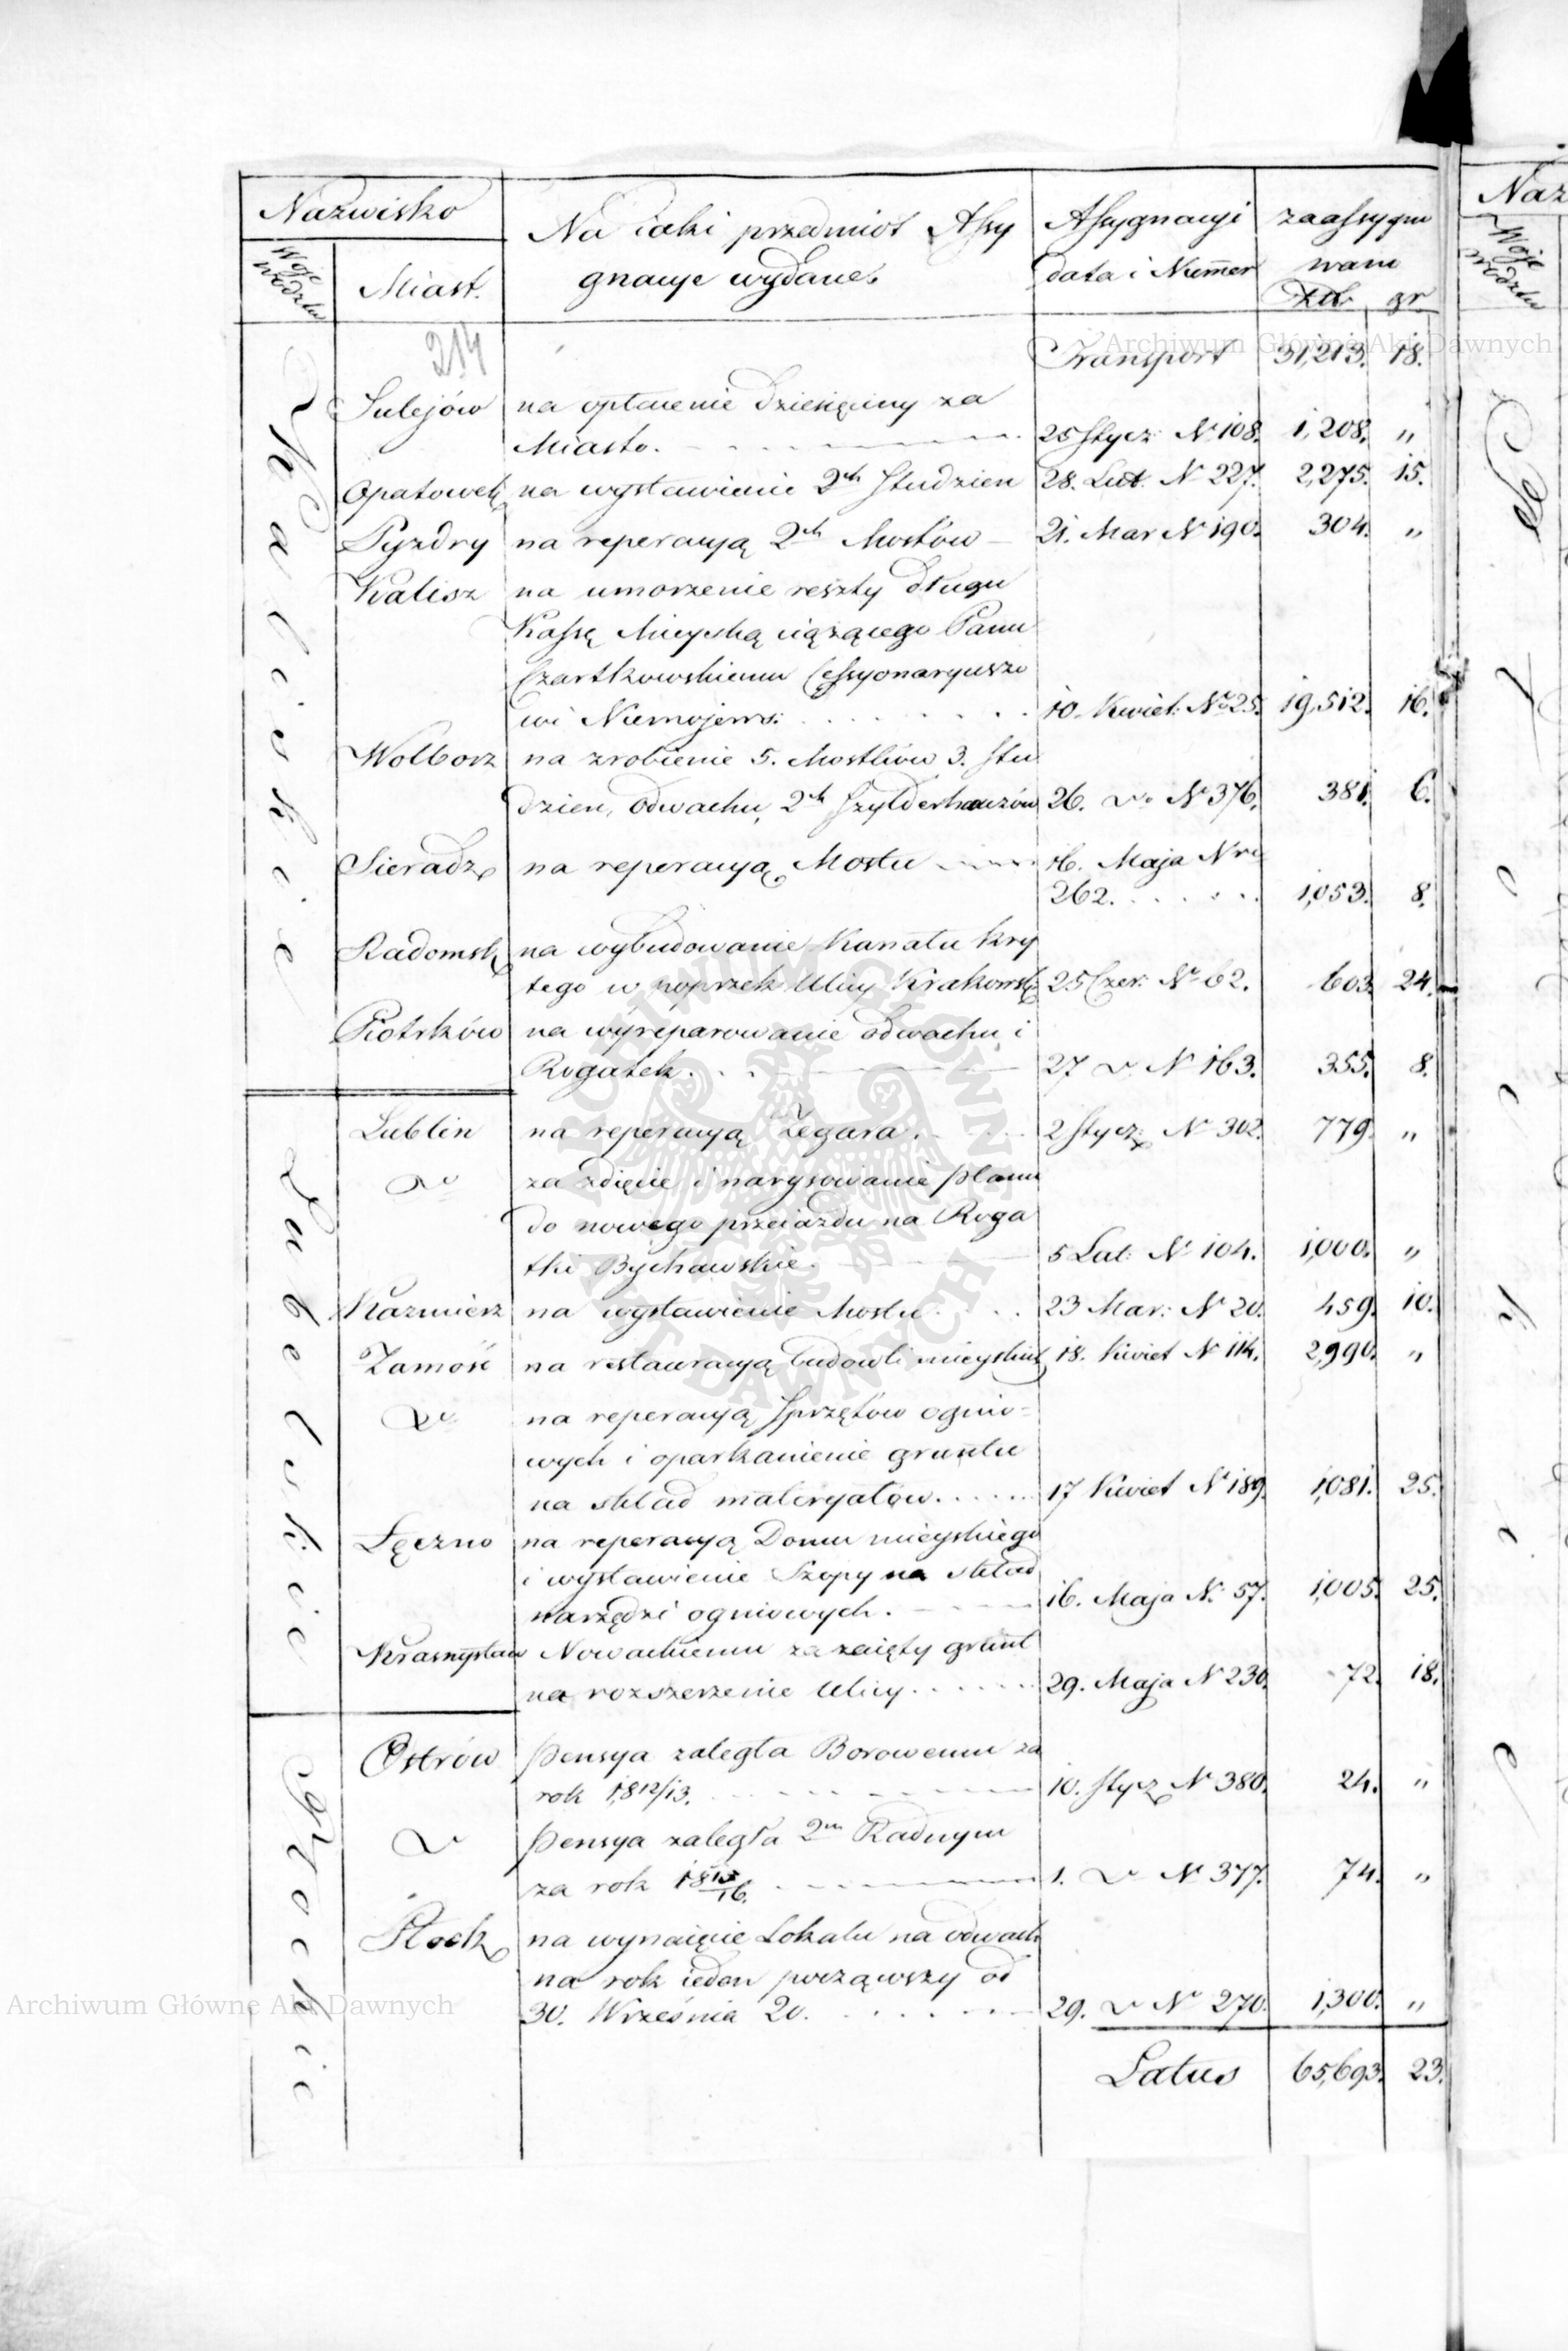 Nazwisko
Woje
wództw
Miast.
Na iaki przedmiot Assy
gnacye wydane
Assygnacyi
data i Nummer
zaassygno
wano
Zł. gr
214
Transport 31,213. 18.
Kaliskie
Sulejów na opłacenie dziesięciny za
Miasto. 25 Stycz: N 108. 1,208. "
Opatówek na wystawienie 2ch Studzien 28. Lut. N 227. 2,275. 15.
Pyzdry na reperacyą 2ch Mostów 21. Mar N 190. 304. "
Kalisz na umorzenie reszty długu
Kassę Mieyską ciążącego Panu
Czartkowskiemu Cessyonaryuszo
wi Niemojews: 10. Kwiet: No 25. 19,512. 16.
Wolborz na zrobienie 5. Mostków 3. Stu
dzien, odwachu, 2ch Szylderhauzów 26. do N 376. 381. 6.
Sieradz na reperacyą Mostu 16. Maja Nro
262. 1,053. 8.
Radomsk na wybudowanie Kanału kry
tego w poprzek Ulicy Krakowsk: 25 Czer: N 62. 603. 24.
Piotrków na wyreparowanie odwachu i
Rogatek. 27 do N 163. 355. 8.
Lubelskie
Lublin na reperacyą Zegara. 2 Stycz N 302. 779. "
do za zdięcie i narysowanie planu
do nowego przeiazdu na Roga
tki Bychawskie. 5 Lut: N 104. 1,000. "
Kazmierz na wystawienie Mostu 23 Mar: N 20. 459. 10.
Zamość na restauracyą budowli mieyskich 18. Kwiet N 114. 2,990. "
do na reperacyą Sprzętów ognio-
wych i oparkanienie gruntu
na skład materyałów. 17 Kwiet N 189. 1,081. 25.
Łęczno na reperacyą Domu mieyskiego
i wystawienie Szopy na skład
narzędzi ogniowych. 16. Maja N. 57. 1,005. 25.
Krasnystaw Nowackiemu za zaięty grunt
na rozszerzenie Ulicy. 29. Maja N 230. 72. 18.
Płockie
Ostrów Pensya zaległa Borowemu za
rok 1812/13. 10. Stycz N 380. 24. "
do Pensya zaległa 2m Radnym
za rok 1815/16. 1. do N 377. 74. "
Płock na wynaięcie Lokalu na odwach
na rok ieden począwszy od
30. Września 20. 29. do N 270. 1,300. "
Latus 65,693. 23.
Archiwum Główne Akt Dawnych
Archiwum Główne Akt Dawnych
ARCHIWUM GŁÓWNE AKT DAWNYCH
Naz
Woje
wództw